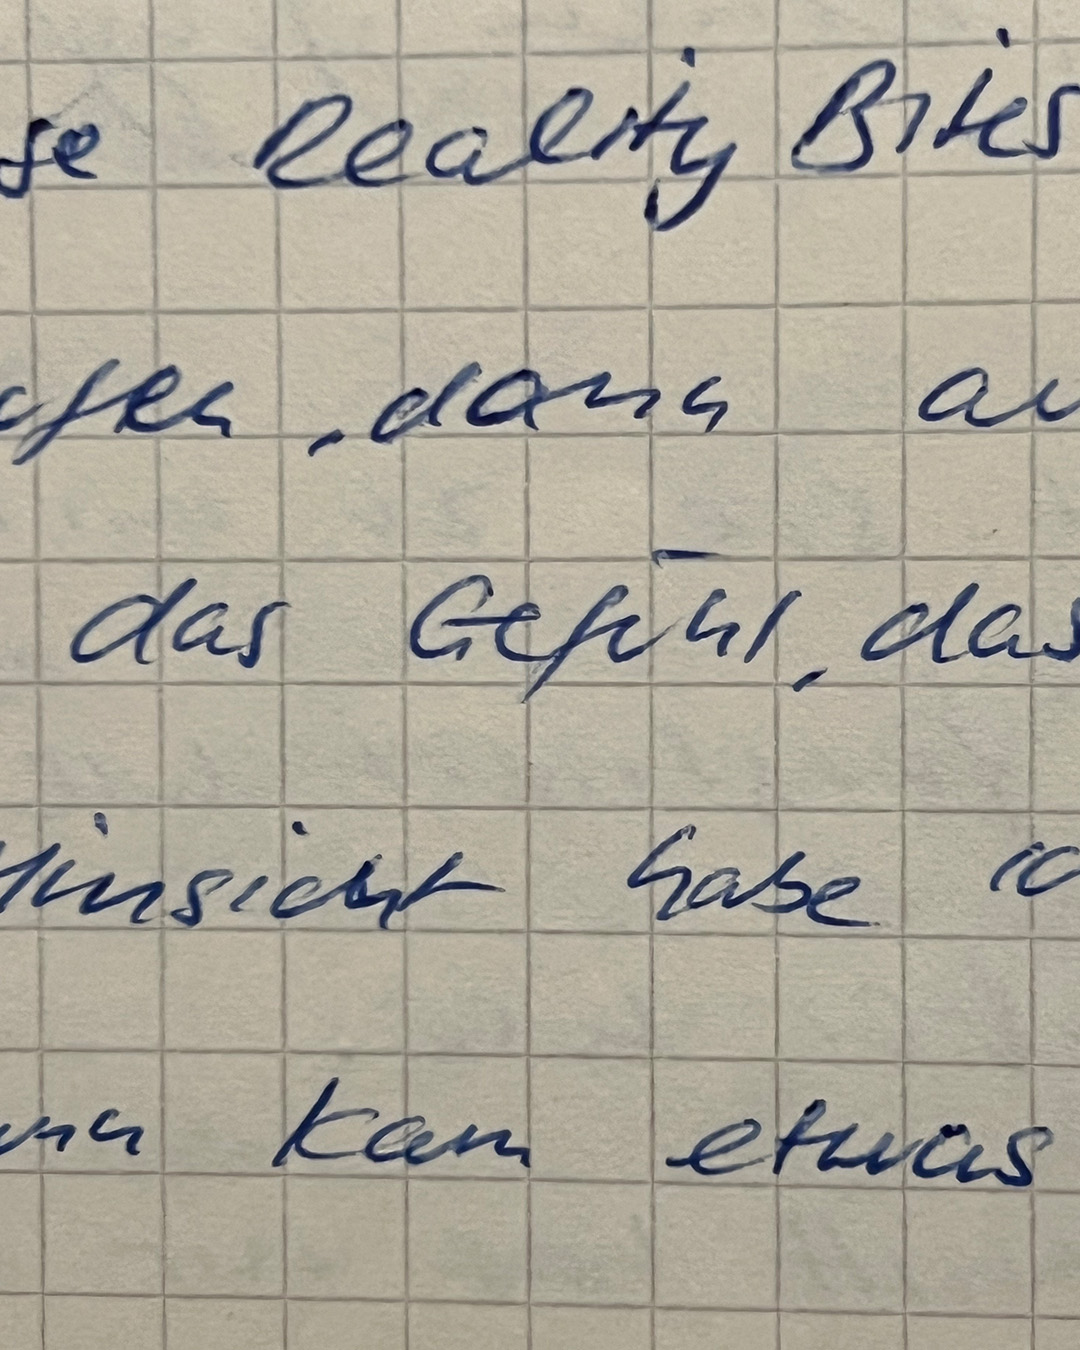 se Reality Bites
, dann
das Gefühl, das
Hinsicht habe ic
ann kam etwas